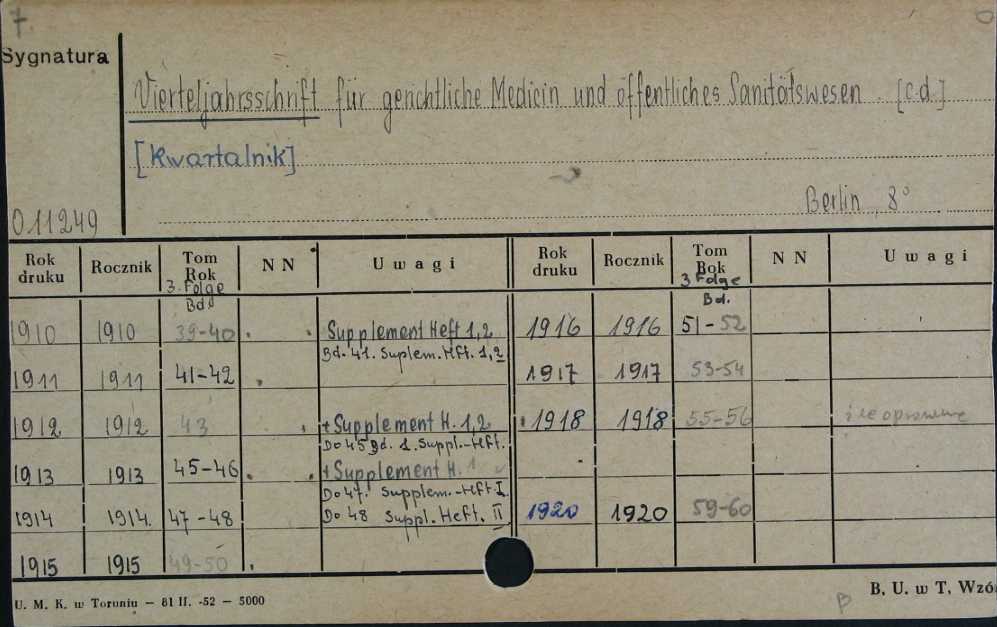 7.
Sygnatura
Vierteljahrsschrift für gerichtliche Medicin und öffentliches Sanitätswesen. [c.d.]
[Kwartalnik]
Berlin, 8°
011249
Rok druku Rocznik Tom Rok 3. Folge Bd. N N Uwagi Rok druku Rocznik Tom Rok 3 Folge Bd. N N Uwagi
1910 1910 39-40 Supplement Heft 1,2 1916 1916 51-52
Bd. 41. Suplem. Hft. 1,2
1911 1911 41-42 1917 1917 53-54
1912 1912 43 + Supplement H. 1,2 1918 1918 55-56
Do 45 Bd. 1. Suppl.-Hft.
1913 1913 45-46 + Supplement H. 1
Do 47. Supplem.-Hft I
1914 1914. 47-48 Do 48 Suppl. Heft. II 1920 1920 59-60
1915 1915 49-50
U. M. K. w Toruniu — 81 II. -52 — 5000
B. U. w T. Wzó